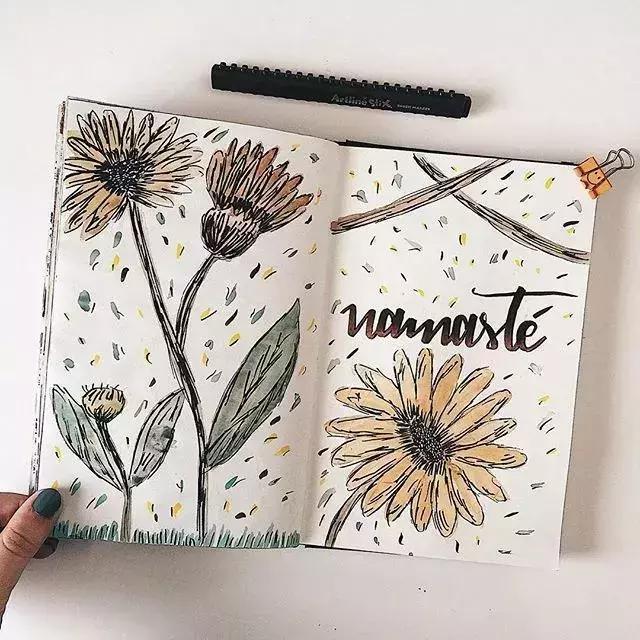 Artline stix
BRUSH MARKER
namasté